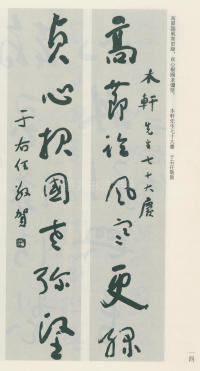 高節臨風寒更綠，貞心報國老彌堅。 木軒先生七十大慶 于右任敬賀
木軒先生七十大慶
高節臨風寒更綠
貞心報國老彌堅
于右任敬賀
一四